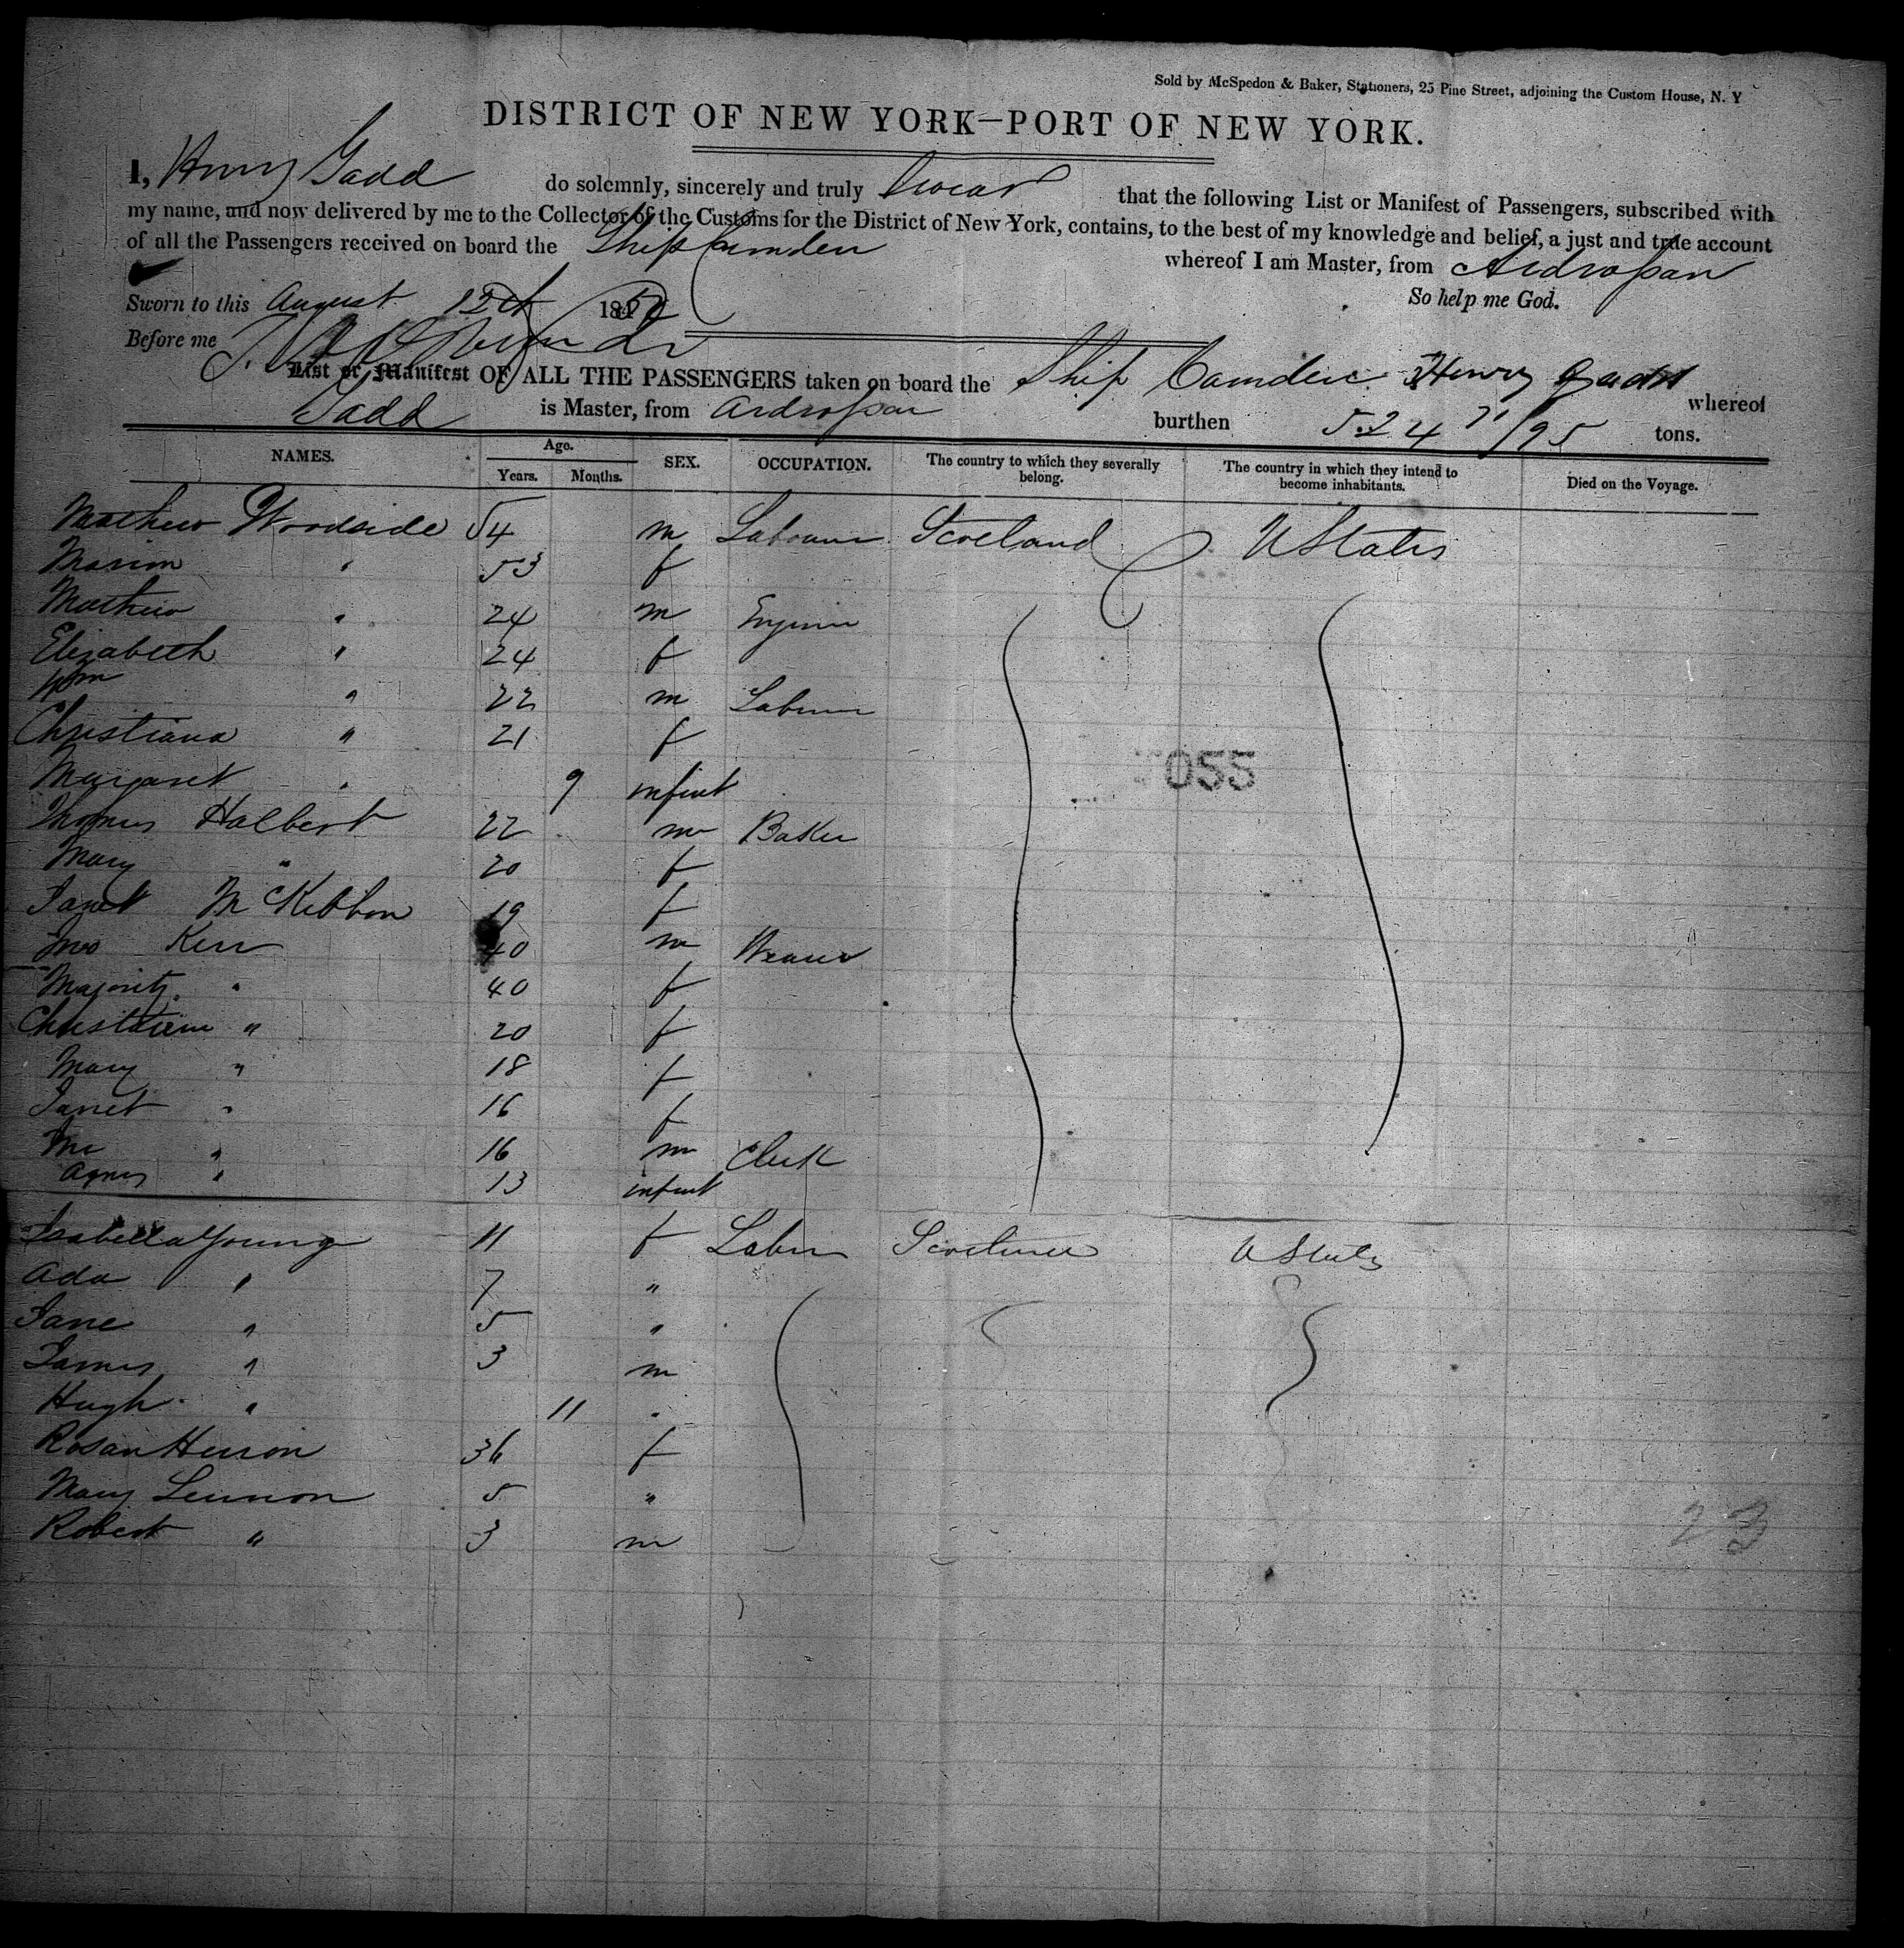 Sold by McSpedon & Baker, Stationers, 25 Pine Street, adjoining the Custom House, N. Y
DISTRICT OF NEW YORK—PORT OF NEW YORK.
I, Henry Gadd do solemnly, sincerely and truly Swear that the following List or Manifest of Passengers, subscribed with
my name, and now delivered by me to the Collector of the Customs for the District of New York, contains, to the best of my knowledge and belief, a just and true account
of all the Passengers received on board the Ship Camden whereof I am Master, from Ardrossan
So help me God.
Sworn to this August 12th 1850
Before me
List or Manifest OF ALL THE PASSENGERS taken on board the Ship Camden Henry Gadd whereof
Gadd is Master, from Ardrossan burthen 524 71/95 tons.
NAMES. Age. Years. Months. SEX. OCCUPATION. The country to which they severally belong. The country in which they intend to become inhabitants. Died on the Voyage.
Mathew Woodside 54 m Labourer Scotland U States
Marion " 53 f
Mathew " 24 m Engineer
Elizabeth " 24 f
Wm " 22 m Labourer
Christiana " 21 f
Margaret " 9 infant
7055
Thomas Halbert 22 m Baker
Mary " 20 f
Janet McKibbon 19 f
Jno Kerr 40 m Weaver
Majority " 40 f
Christiann " 20 f
Mary " 18 f
Janet " 16 f
Jno " 16 m Clerk
Agnes " 13 infant
Isabella Young 11 f Labour Scotland U States
Ada " 7 "
Jane " 5 "
James " 3 m
Hugh " 11 "
Rosan Herron 36 f
Mary Lennon 5 "
Robert " 3 m
23